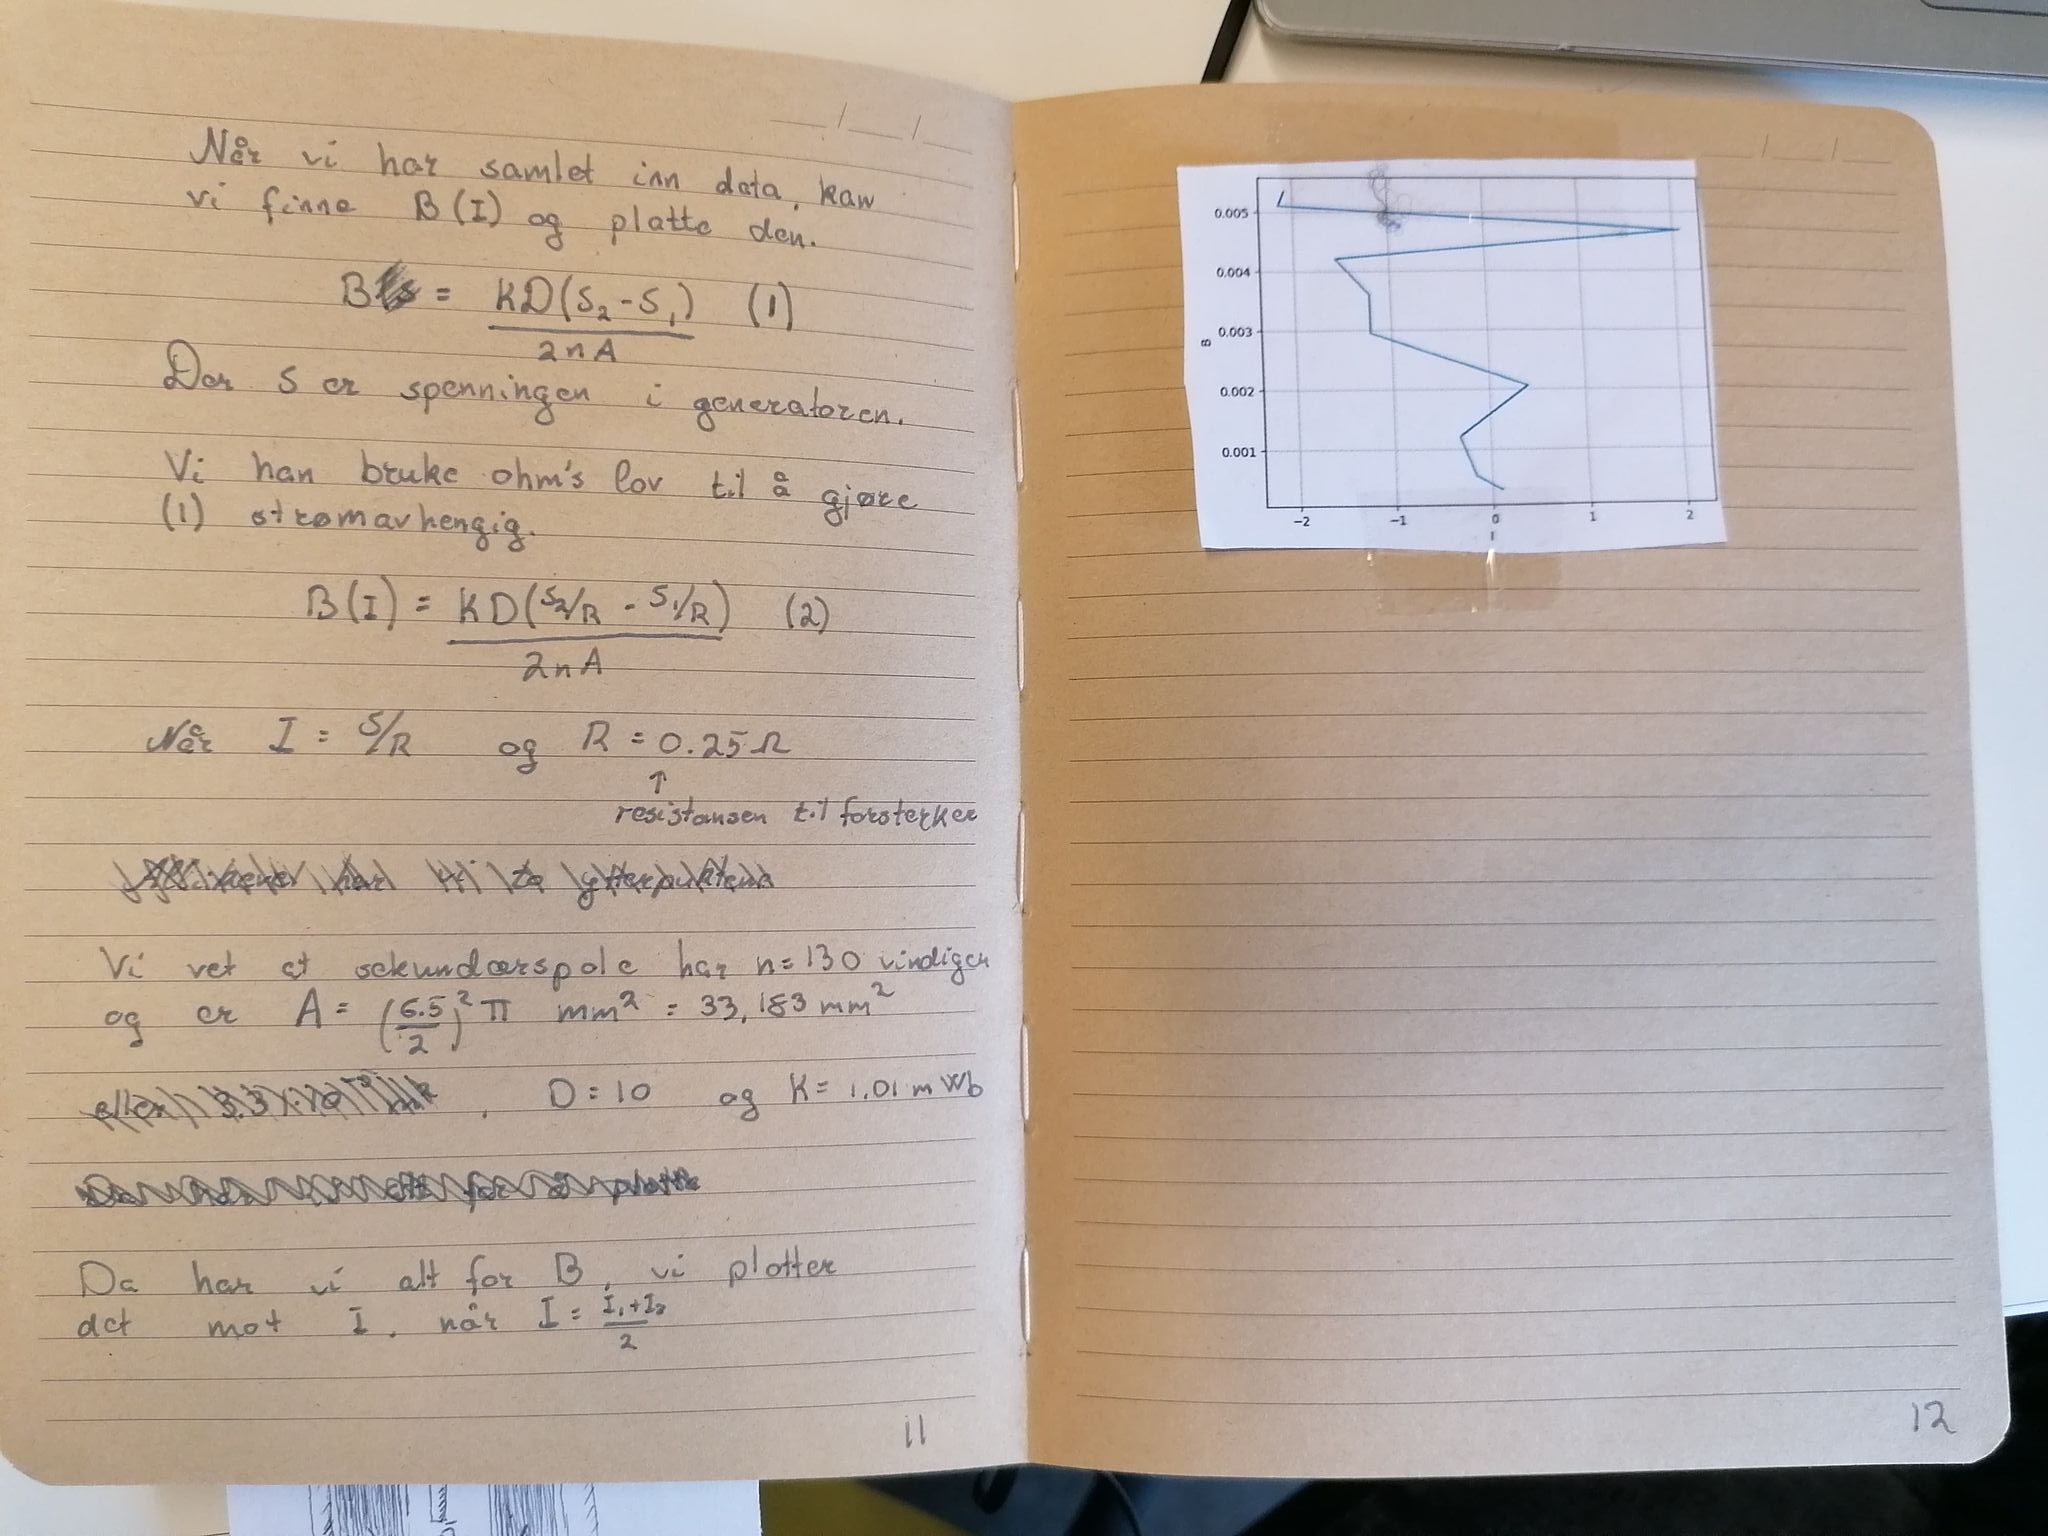 Når vi har samlet inn data, kan
vi finne B(I) og plotte den.
B = KD(S₂-S₁) / 2nA (1)
Der S er spenningen i generatoren.
Vi kan bruke ohm's lov til å gjøre
(1) strømavhengig.
B(I) = KD(S₂/R - S₁/R) / 2nA (2)
Når I = S/R og R = 0.25Ω
↑
resistansen til forsterker
Vi vet at sekundærspole har n=130 vindigen
og er A = (6.5/2)² π mm² = 33,183 mm²
, D=10 og K= 1.01 mWb
Da har vi alt for B, vi plotter
det mot I, når I = I₁+I₂ / 2
11
0.005
0.004
0.003
B
0.002
0.001
−2 −1 0 1 2
I
12